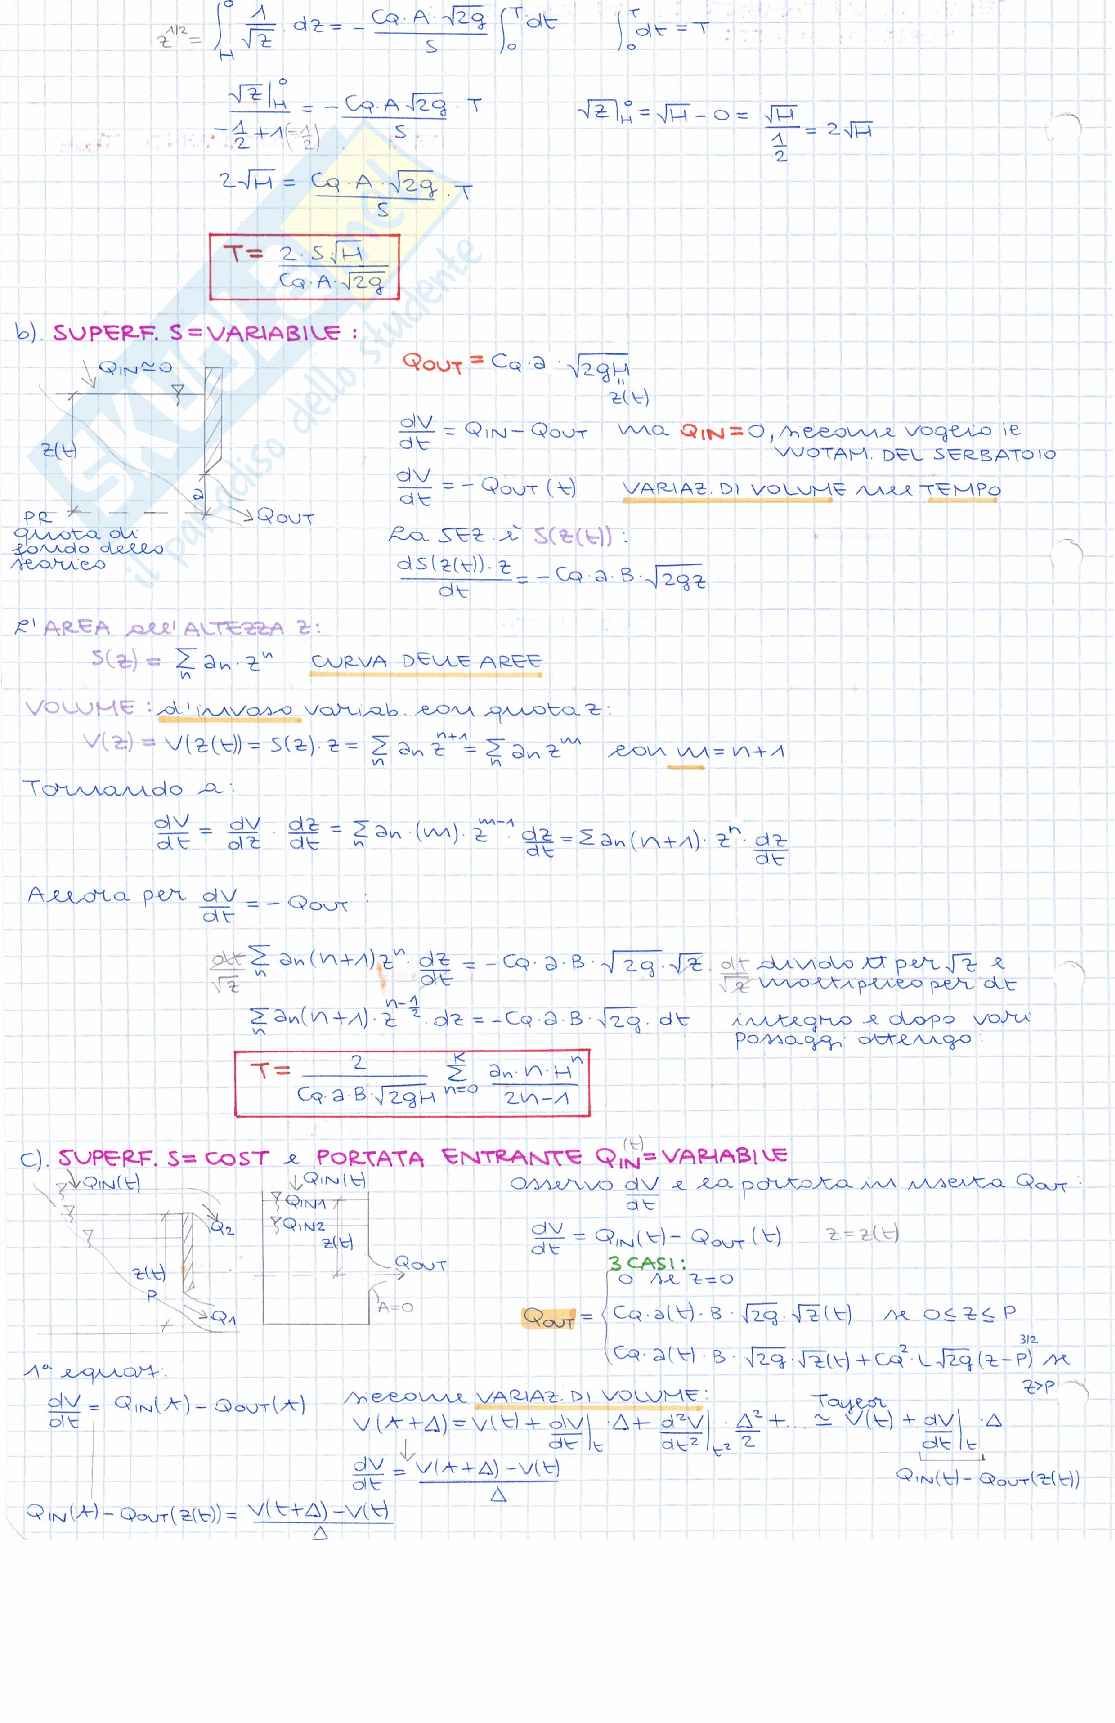 z^1/2 = ∫_H^0 1/√z · dz = - CQ·A·√2g/S ∫_0^T dt    ∫_0^T dt = T
√z|_H^0 / -1/2+1(=1/2) = - CQ·A√2g/S · T    √z|_H^0 = √H - 0 = √H/(1/2) = 2√H
2√H = CQ·A·√2g/S · T
T = 2·S√H / CQ·A·√2g
b). SUPERF. S=VARIABILE :
QIN≃0
z(t)
a
QOUT
PR
quota di fondo dello scarico
QOUT = CQ·a·√2gH
z(t)
dV/dt = QIN - QOUT   ma QIN=0, siccome voglio il
VUOTAM. DEL SERBATOIO
dV/dt = - QOUT(t)   VARIAZ. DI VOLUME nel TEMPO
La SEZ. è S(z(t)) :
dS(z(t))·z/dt = - CQ·a·B·√2gz
L'AREA all'ALTEZZA z:
S(z) = Σ_n an·z^n   CURVA DELLE AREE
VOLUME : d'invaso variab. con quota z:
V(z) = V(z(t)) = S(z)·z = Σ_n an z^n+1 = Σ_n an z^m   con m=n+1
Tornando a:
dV/dt = dV/dz · dz/dt = Σ_n an·(m)·z^m-1 · dz/dt = Σ an(n+1)·z^n · dz/dt
Allora per dV/dt = - QOUT :
dt/√z Σ_n an(n+1)z^n · dz/dt = - CQ·a·B·√2g·√z · dt/√z divido tt per √z e
moltiplico per dt
Σ_n an(n+1)·z^n-1/2 · dz = - CQ·a·B·√2g·dt   integro e dopo vari
passaggi ottengo:
T = 2/CQ·a·B√2gH Σ_n=0^K an·n·H^n/2n-1
c). SUPERF. S=COST e PORTATA ENTRANTE QIN(t)=VARIABILE
QIN(t)
Q2
z(t)
P
Q1
QIN(t)
QIN1
QIN2
z(t)
QOUT
A=0
Osservo dV/dt e la portata in uscita QOUT :
dV/dt = QIN(t) - QOUT(t)   z=z(t)
3 CASI:
QOUT = { 0 se z=0
CQ·a(t)·B·√2g·√z(t)   se 0≤z≤P
CQ·a(t)·B·√2g·√z(t) + CQ^2·L√2g(z-P)^3/2 se
z>P
1ª equaz.
dV/dt = QIN(t) - QOUT(t)   siccome VARIAZ. DI VOLUME:
V(t+Δ) = V(t) + dV/dt|t · Δ + d²V/dt²|t² · Δ²/2 + ... ≃ V(t) + dV/dt|t · Δ
Taylor
QIN(t) - QOUT(z(t))
dV/dt = V(t+Δ) - V(t)/Δ
QIN(t) - QOUT(z(t)) = V(t+Δ) - V(t)/Δ
SKUOLA.net
il paradiso dello studente